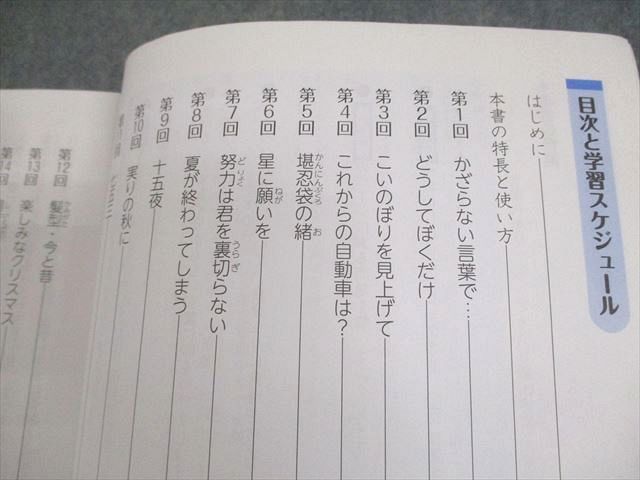 目次と学習スケジュール
はじめに
本書の特長と使い方
第1回 かざらない言葉で…
第2回 どうしてぼくだけ
第3回 こいのぼりを見上げて
第4回 これからの自動車は?
第5回 堪忍袋の緒
かんにんぶくろ お
第6回 星に願いを
ねが
第7回 努力は君を裏切らない
どりょく うらぎ
第8回 夏が終わってしまう
第9回 十五夜
第10回 実りの秋に
第12回 髪型・今と昔
第13回 楽しみなクリスマス
第14回